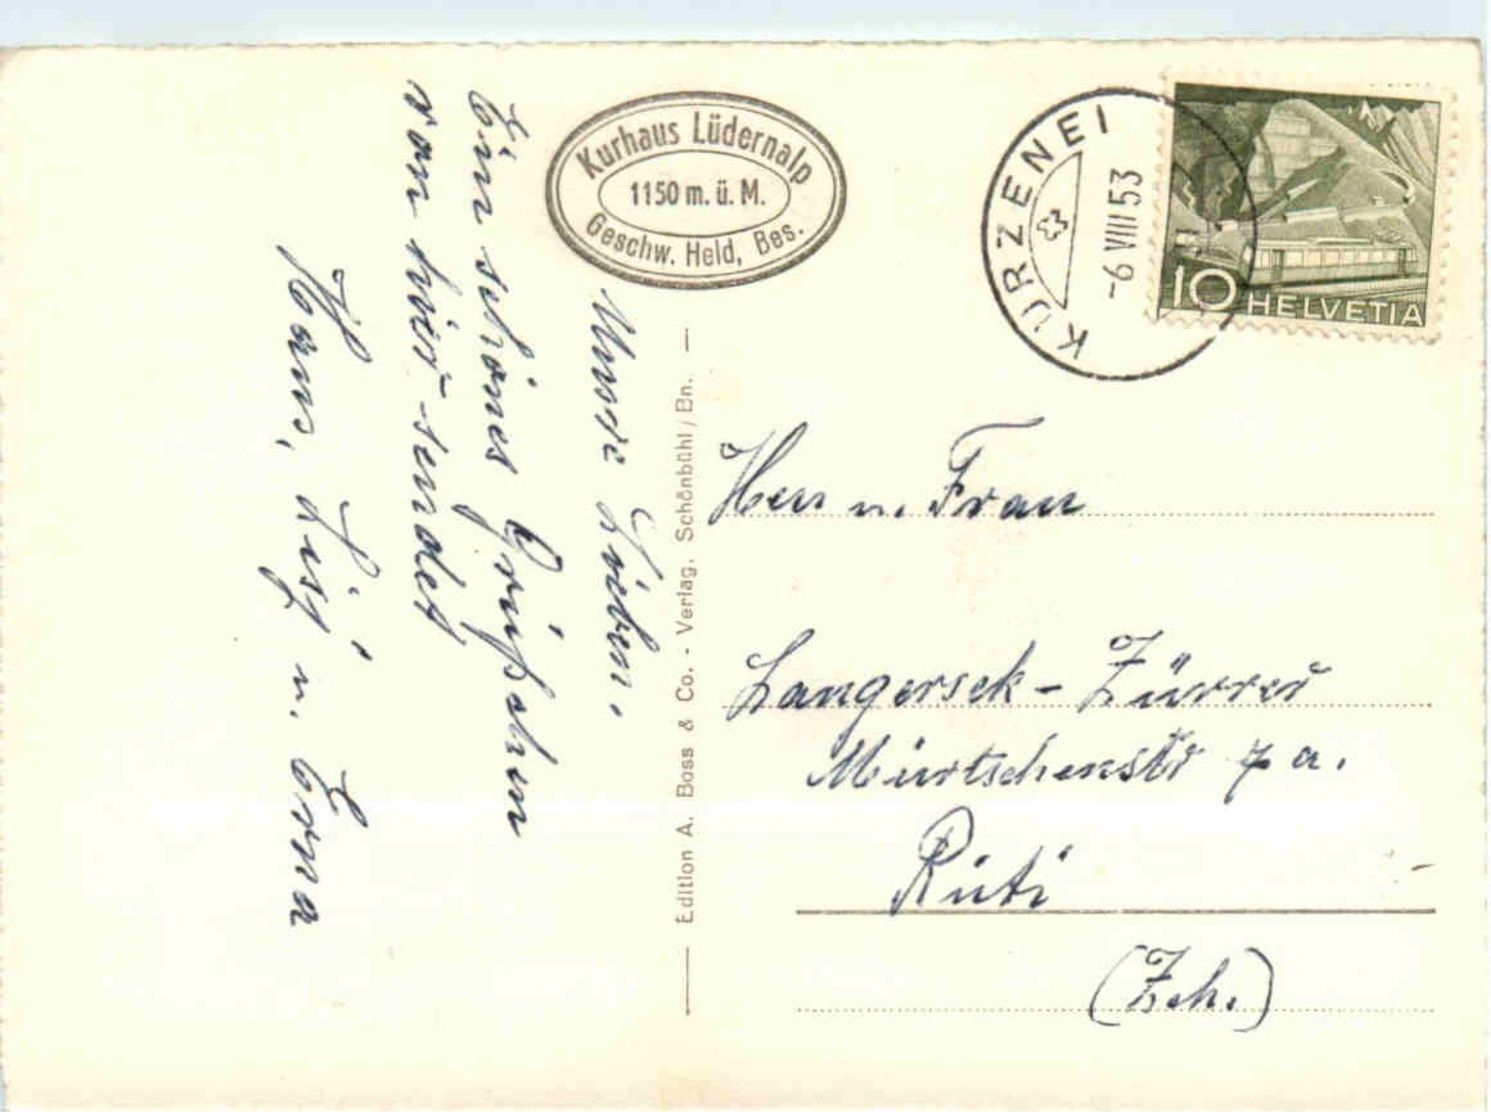 Kurhaus Lüdernalp
1150 m. ü. M.
Geschw. Held, Bes.
Unsre Lieben.
Ein schönes Grüsschen
von hier sendet
Hans, Lisj u. Erna
Edition A. Boss & Co. - Verlag, Schönbühl / Bn.
KURZENEI
-6 VIII 53
10 HELVETIA
Herr u. Frau
Langersek - Zürrer
Mürtschenstr 7 a.
Rüti
(Zch.)